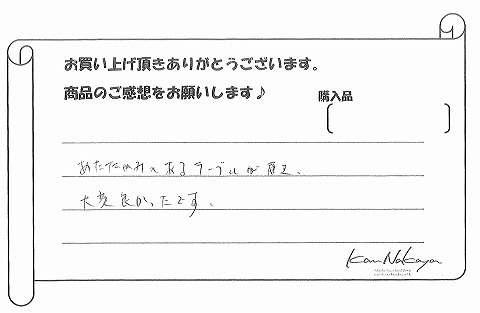 お買い上げ頂きありがとうございます。
商品のご感想をお願いします♪
購入品
あたたかみのあるテーブルが届き、
大変良かったです。